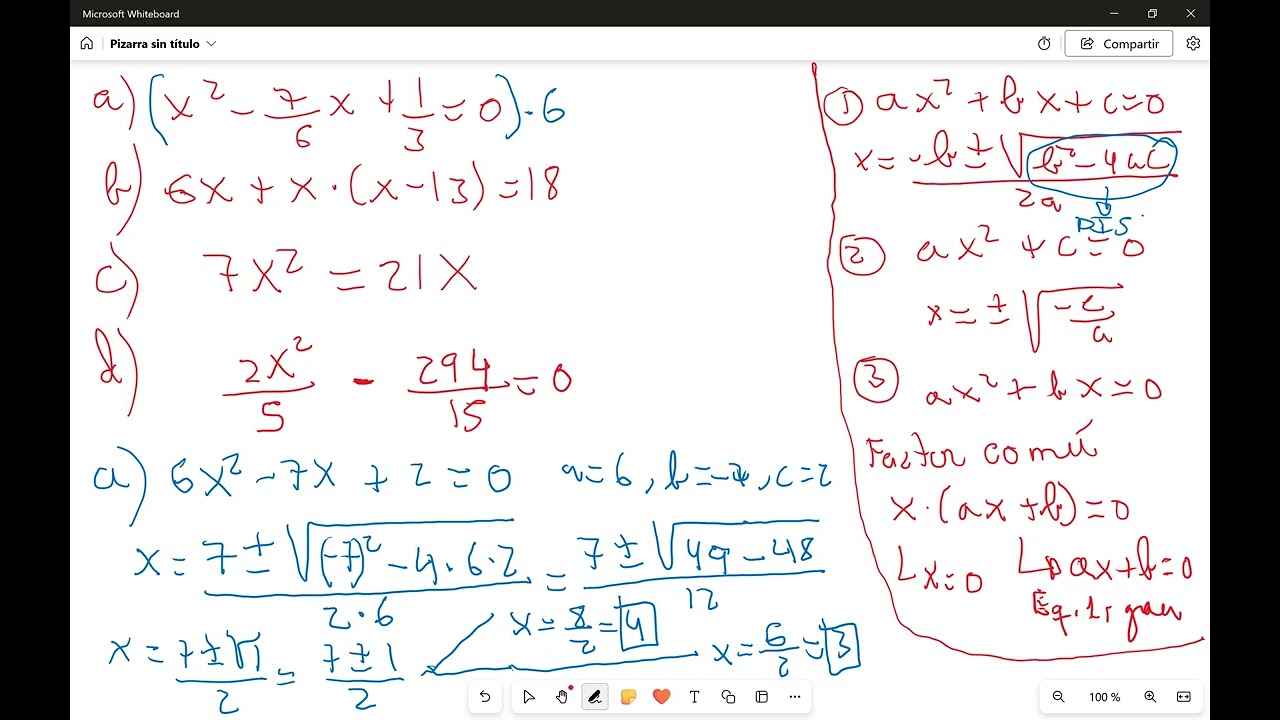 Microsoft Whiteboard
Pizarra sin título
Compartir
a) (x² - 7/6 x + 1/3 = 0) · 6
b) 6x + x · (x - 13) = 18
c) 7x² = 21x
d) 2x²/5 - 294/15 = 0
a) 6x² - 7x + 2 = 0 a = 6, b = -7, c = 2
x = (7 ± √((-7)² - 4 · 6 · 2))/(2 · 6) = (7 ± √(49 - 48))/12
x = (7 ± √1)/2 = (7 ± 1)/2
x = 8/2 = 4
x = 6/2 = 3
① ax² + bx + c = 0
x = (-b ± √(b² - 4ac))/2a
DIS
② ax² + c = 0
x = ± √(-c/a)
③ ax² + bx = 0
Factor comú
x · (ax + b) = 0
x = 0
ax + b = 0
Eq. 1r grau
100 %